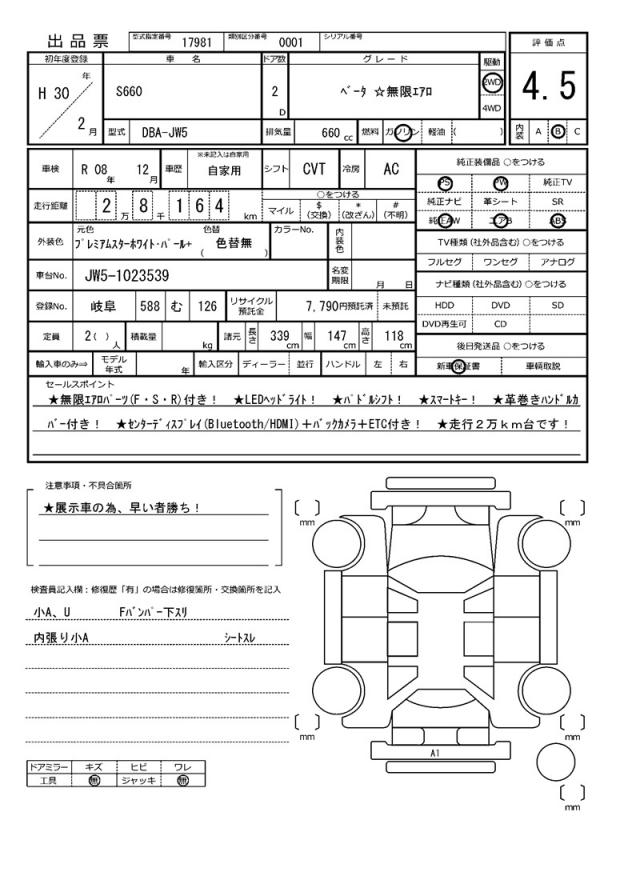 出品票 型式指定番号 17981 類別区分番号 0001 シリアル番号
評価点
4.5
内装 A B C
初年度登録 車名 ドア数 グレード 駆動
H 30 年 2 月 S660 2 D ベータ ☆無限エアロ 2WD 4WD
型式 DBA-JW5 排気量 660 cc 燃料 ガソリン 軽油 ( )
車検 R 08 年 12 月 車歴 ※未記入は自家用 自家用 シフト CVT 冷房 AC
走行距離 2 万 8 千 1 6 4 km
○をつける
マイル $ (交換) * (改ざん) # (不明)
外装色 元色 プレミアムスターホワイト・パール+ 色替 ( 色替無 ) カラーNo. 内装色
車台No. JW5-1023539 名変期限 月 日
登録No. 岐阜 588 む 126 リサイクル預託金 7,790円預託済 未預託
定員 2( ) 人 積載量 kg 諸元 長さ 339 cm 幅 147 cm 高さ 118 cm
輸入車のみ⇒ モデル年式 年 輸入区分 ディーラー 並行 ハンドル 左 右
純正装備品 ○をつける
PS PW 純正TV
純正ナビ 革シート SR
純正AW エアB ABS
TV種類 (社外品含む) ○をつける
フルセグ ワンセグ アナログ
ナビ種類 (社外品含む) ○をつける
HDD DVD SD
DVD再生可 CD
後日発送品 ○をつける
新車保証書 車輌取説
セールスポイント
★無限エアロパーツ(F・S・R)付き! ★LEDヘッドライト! ★パドルシフト! ★スマートキー! ★革巻きハンドルカ
バー付き! ★センターディスプレイ(Bluetooth/HDMI)+バックカメラ+ETC付き! ★走行2万km台です!
注意事項・不具合箇所
★展示車の為、早い者勝ち!
検査員記入欄:修復歴「有」の場合は修復箇所・交換箇所を記入
小A、U Fバンパー下スリ
内張り小A シートスレ
ドアミラー キズ ヒビ ワレ
工具 無 ジャッキ 無
mm
mm
mm
mm
A1
mm